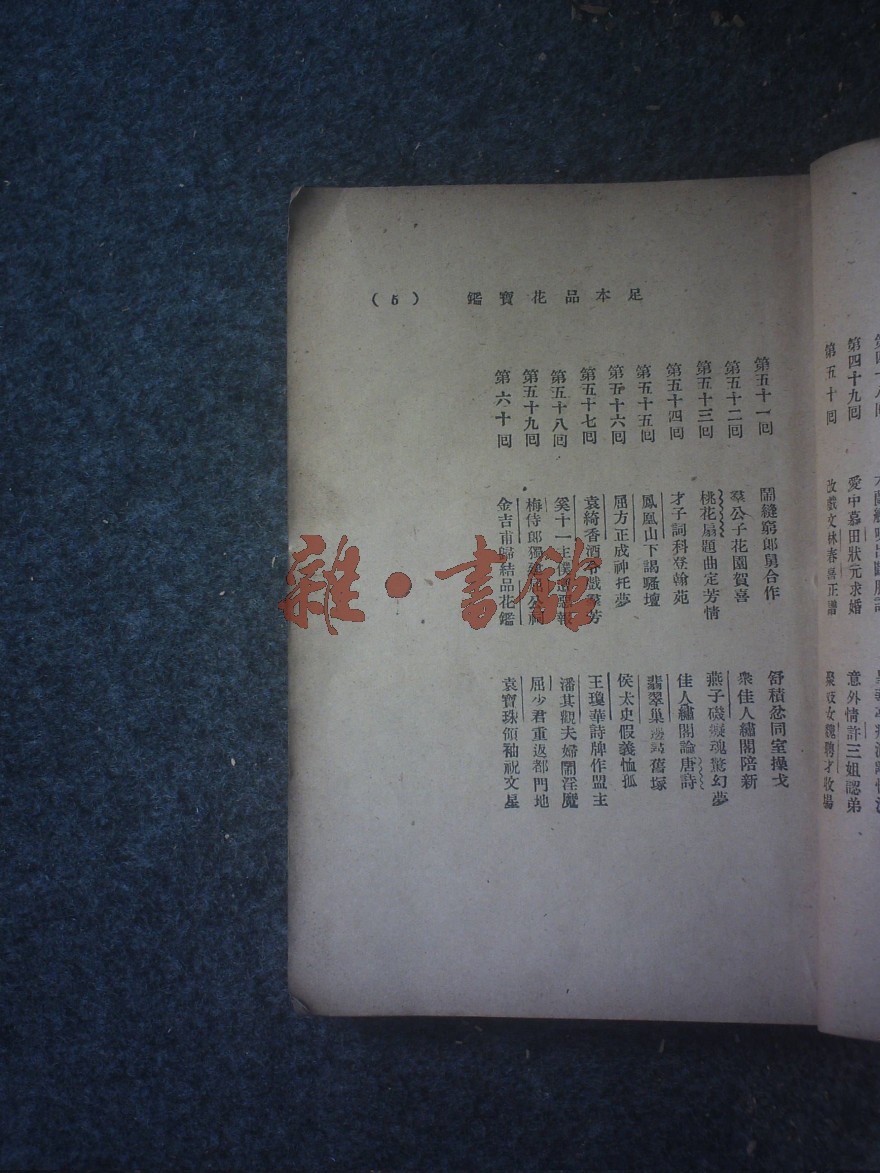 足本品花寶鑑 (5)
第五十一回 鬧縫窮郎舅合作 舒積忿同室操戈
第五十二回 羣公子花園賀喜 衆佳人繡閣陪新
第五十三回 桃花扇題曲定芳情 燕子磯癡魂驚幻夢
第五十四回 才子詞科登翰苑 佳人繡閣論唐詩
第五十五回 鳳凰山下謁騷壇 翡翠巢邊尋舊塚
第五十六回 屈方正成神托夢 侯太史假義恤孤
第五十七回 袁綺香酒令戲羣芳 王瓊華詩牌作盟主
第五十八回 奚十一主僕遭惡報 潘其觀夫婦鬧淫魔
第五十九回 梅侍郎獨建屈公祠 屈少君重返都門地
第六十回 金吉甫歸結品花鑑 袁寶珠領袖祝文星
第四十九回 愛中慕田狀元求婚 意外情許三姐認弟
第五十回 改戲文林春喜正譜 娶妓女魏聘才收場
雜·書館